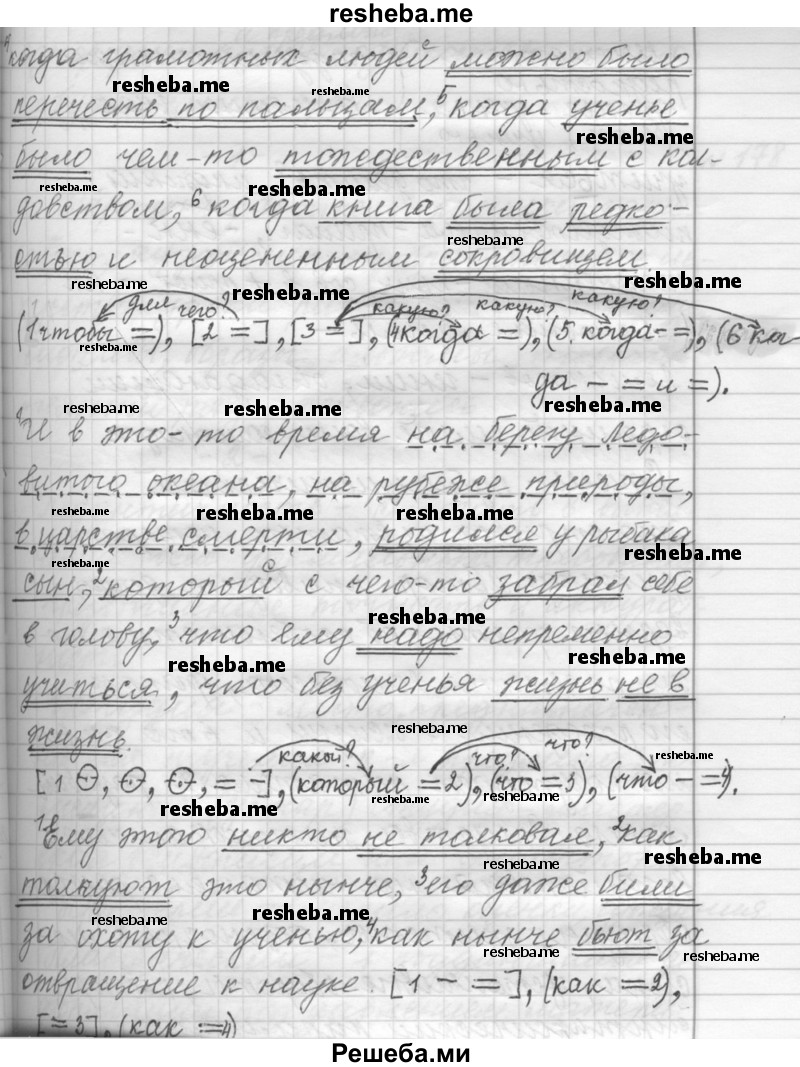 resheba.me
⁴когда грамотных людей можно было
перечесть по пальцам, ⁵когда ученье
было чем-то тождественным с кол-
довством, ⁶когда книга была редко-
стью и неоцененным сокровищем.
для чего? какую? какую? какую?
(1чтобы =), [2 =], [3 =], (4когда =), (5. когда - =), (6 ког-
да - = и =).
¹И в это-то время на берегу Ледо-
витого океана, на рубеже природы,
в царстве смерти, родился у рыбака
сын, ²который с чего-то забрал себе
в голову, ³что ему надо непременно
учиться, что без ученья жизнь не в
жизнь.
какой? что? что?
[1 ⊖, ⊖, ⊖, = -], (который = 2), (что = 3), (что - = 4).
¹Ему этого никто не толковал, ²как
толкуют это нынче, ³его даже били
за охоту к ученью, ⁴как нынче бьют за
отвращение к науке. [1 - = ], (как = 2),
[= 3], (как = 4)
Решеба.ми